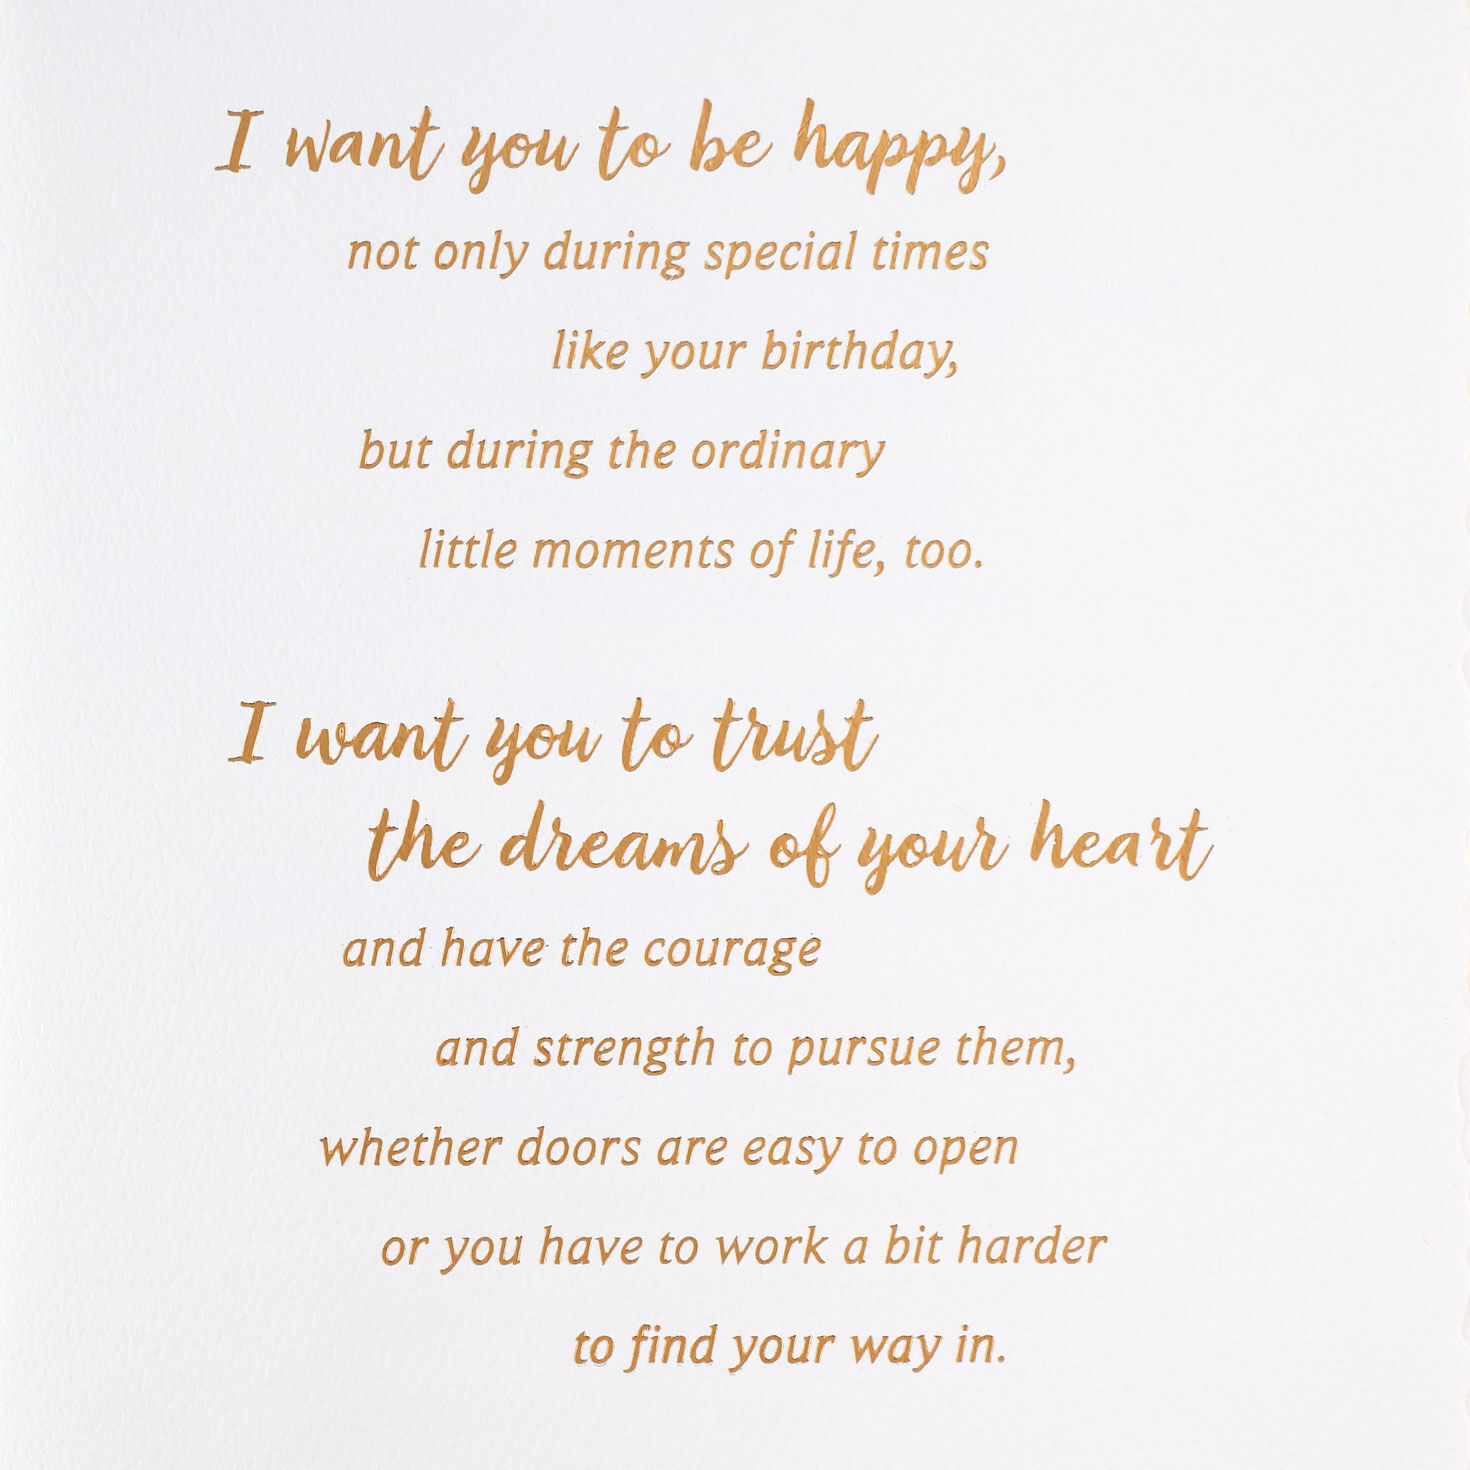 I want you to be happy,
not only during special times
like your birthday,
but during the ordinary
little moments of life, too.
I want you to trust
the dreams of your heart
and have the courage
and strength to pursue them,
whether doors are easy to open
or you have to work a bit harder
to find your way in.